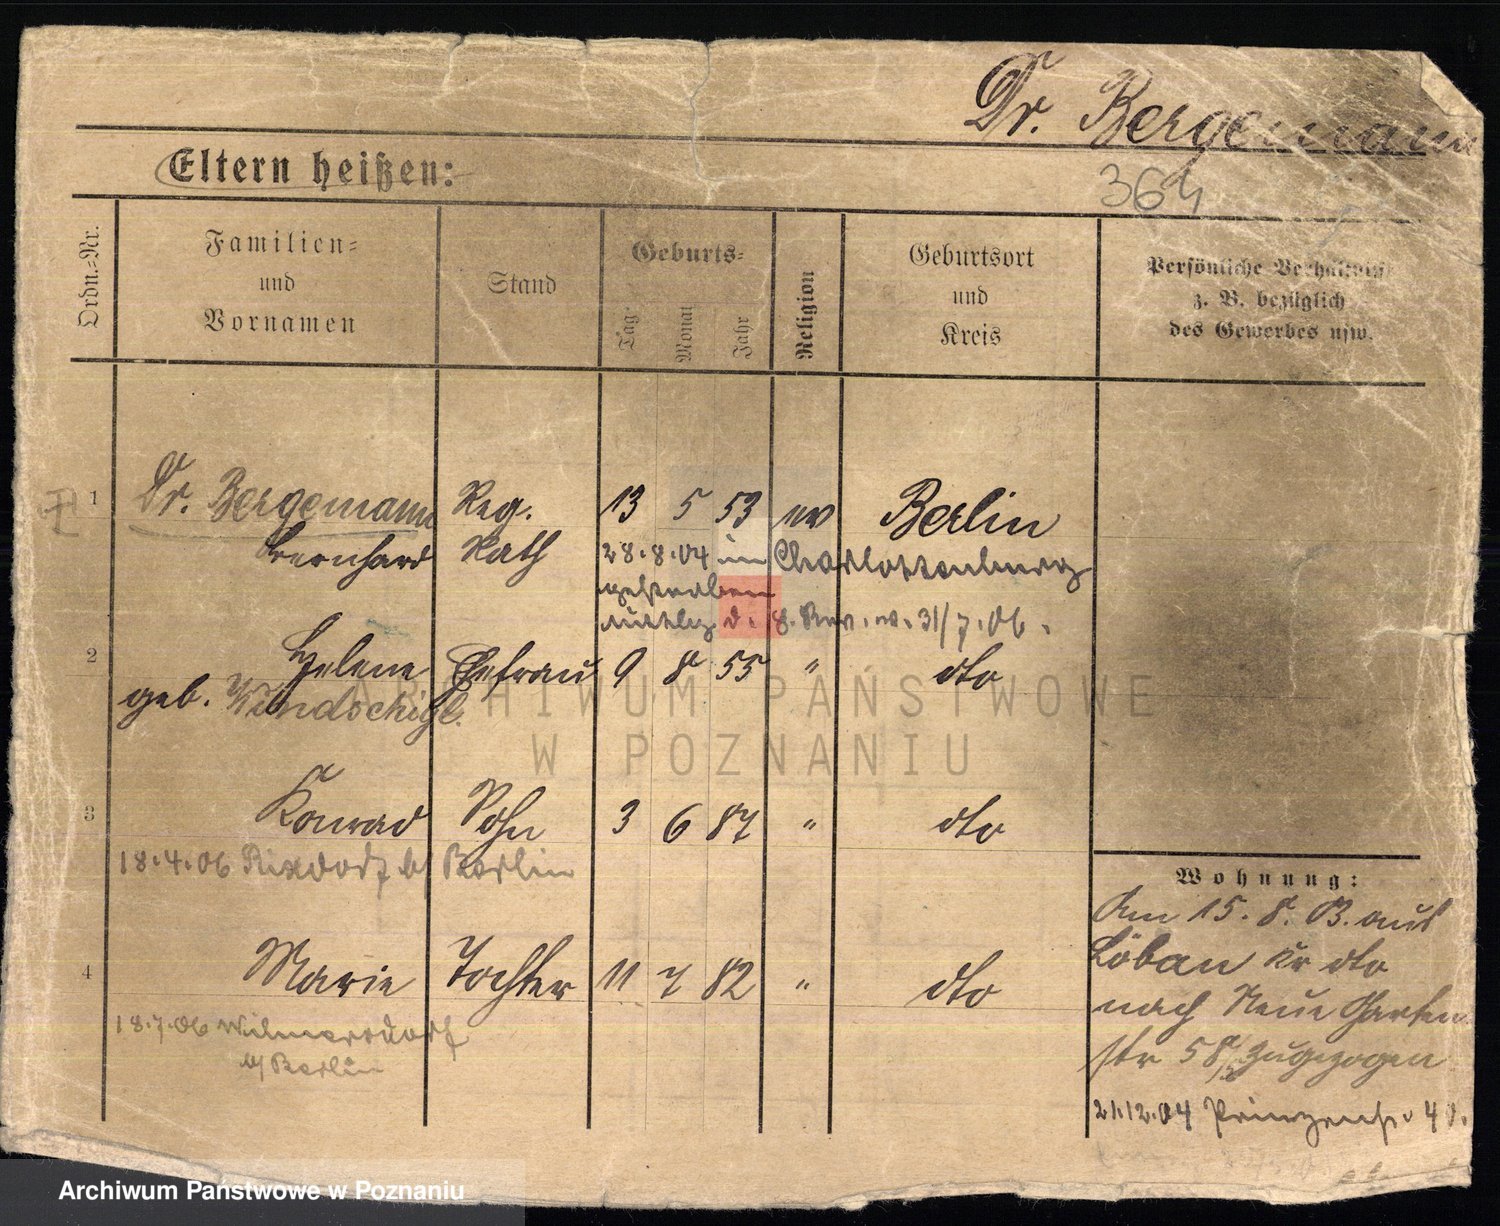 Dr. Bergemann
Eltern heißen:
364
Ordn.-Nr.
Familien-
und
Vornamen
Stand
Geburts-
Tag
Monat
Jahr
Religion
Geburtsort
und
Kreis
Persönliche Verhältnisse
z. B. bezüglich
des Gewerbes usw.
1 Dr. Bergemann Reg. 13 5 53 ev Berlin
Bernhard Rath 28.8.04 in Charlottenburg
gestorben
d. 8. Rev. v. 31/7.06.
2 Helene Ehefrau 9 8 55 " dto
geb. Windschigl.
3 Konrad Sohn 3 6 87 " dto
18.4.06 Rixdorf b/ Berlin
4 Marie Tochter 11 7 82 " dto
18.7.06 Wilmersdorf
b/ Berlin
Wohnung:
Am 15. 8. 03. aus
Löbau Kr dto
nach Neue Garten
str 58 zugezogen
21.12.04 Prinzenstr 40.
ARCHIWUM PAŃSTWOWE
W POZNANIU
Archiwum Państwowe w Poznaniu